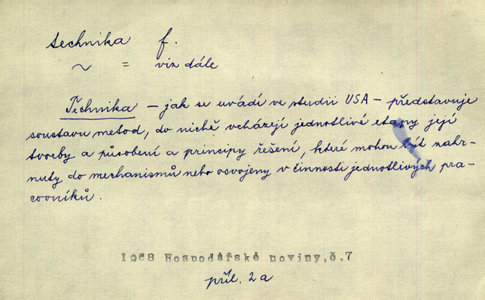 technika f.
~ = viz dále
Technika – jak se uvádí ve studii USA – představuje
soustavu metod, do nichž vcházejí jednotlivé etapy její
tvorby a působení a principy řešení, které mohou být zahr-
nuty do mechanismů nebo osvojeny v činnosti jednotlivých pra-
covníků.
1968 Hospodářské noviny, č.7
příl. 2a